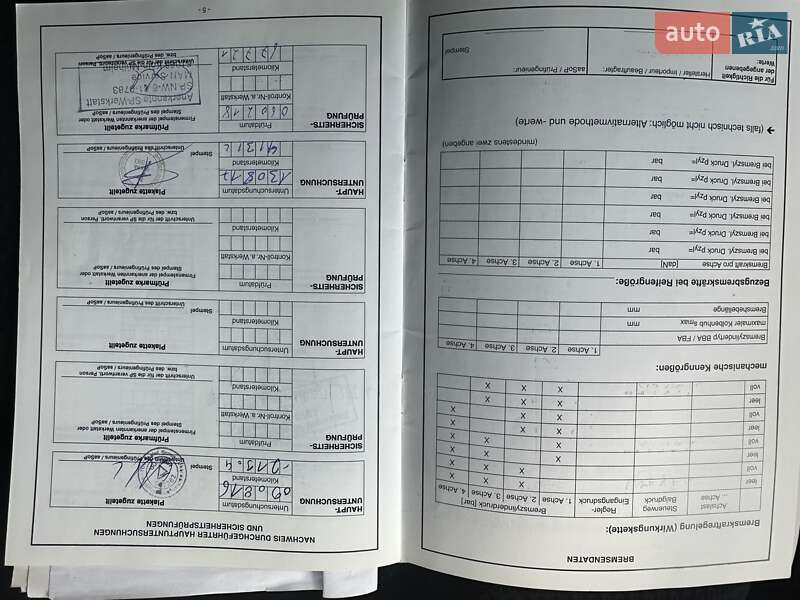 BREMSENDATEN
Bremskraftregelung (Wirkungskette):
Achslast
... Achse
Steuerweg
Balgdruck
Regler-
Eingangsdruck
Bremszylinderdruck [bar]
1. Achse 2. Achse 3. Achse 4. Achse
leer X X
voll X X
leer X X
voll X X
leer X X
voll X X
leer X X X
voll X X X
mechanische Kenngrößen:
1. Achse 2. Achse 3. Achse 4. Achse
Bremszylindertyp BBA / FBA
maximaler Kolbenhub smax mm
Bremshebellänge mm
Bezugbremskräfte bei Reifengröße:
Bremskraft pro Achse [daN] 1. Achse 2. Achse 3. Achse 4. Achse
bei Bremszyl. Druck pzyl= bar
bei Bremszyl. Druck pzyl= bar
bei Bremszyl. Druck pzyl= bar
bei Bremszyl. Druck pzyl= bar
bei Bremszyl. Druck pzyl= bar
(mindestens zwei angeben)
➔ (falls technisch nicht möglich: Alternativmethode und -werte)
Für die Richtigkeit
der angegebenen
Werte:
Hersteller / Importeur / Beauftragter:
aaSoP / Prüfingenieur:
Stempel
NACHWEIS DURCHGEFÜHRTER HAUPTUNTERSUCHUNGEN
UND SICHERHEITSPRÜFUNGEN
HAUPT-
UNTERSUCHUNG
Untersuchungsdatum
090816
Kilometerstand
Plakette zugeteilt
Stempel
Unterschrift des Prüfingenieurs / aaSoP
SICHERHEITS-
PRÜFUNG
Prüfdatum
Kontroll-Nr. a. Werkstatt
Kilometerstand
Prüfmarke zugeteilt
Firmenstempel der anerkannten Werkstatt oder
Stempel des Prüfingenieurs / aaSoP
Unterschrift der für die SP verantwortl. Person
bzw. des Prüfingenieurs / aaSoP
HAUPT-
UNTERSUCHUNG
Untersuchungsdatum
Kilometerstand
Plakette zugeteilt
Stempel
Unterschrift des Prüfingenieurs / aaSoP
SICHERHEITS-
PRÜFUNG
Prüfdatum
Kontroll-Nr. a. Werkstatt
Kilometerstand
Prüfmarke zugeteilt
Firmenstempel der anerkannten Werkstatt oder
Stempel des Prüfingenieurs / aaSoP
Unterschrift der für die SP verantwortl. Person
bzw. des Prüfingenieurs / aaSoP
HAUPT-
UNTERSUCHUNG
Untersuchungsdatum
130817
Kilometerstand
Plakette zugeteilt
Stempel
Unterschrift des Prüfingenieurs / aaSoP
SICHERHEITS-
PRÜFUNG
Prüfdatum
060218
Kontroll-Nr. a. Werkstatt
Kilometerstand
Prüfmarke zugeteilt
Firmenstempel der anerkannten Werkstatt oder
Stempel des Prüfingenieurs / aaSoP
Anerkannte SP-Werkstatt
MAN-Service
Unterschrift der für die SP verantwortl. Person
bzw. des Prüfingenieurs / aaSoP
- 5 -
auto RIA.com